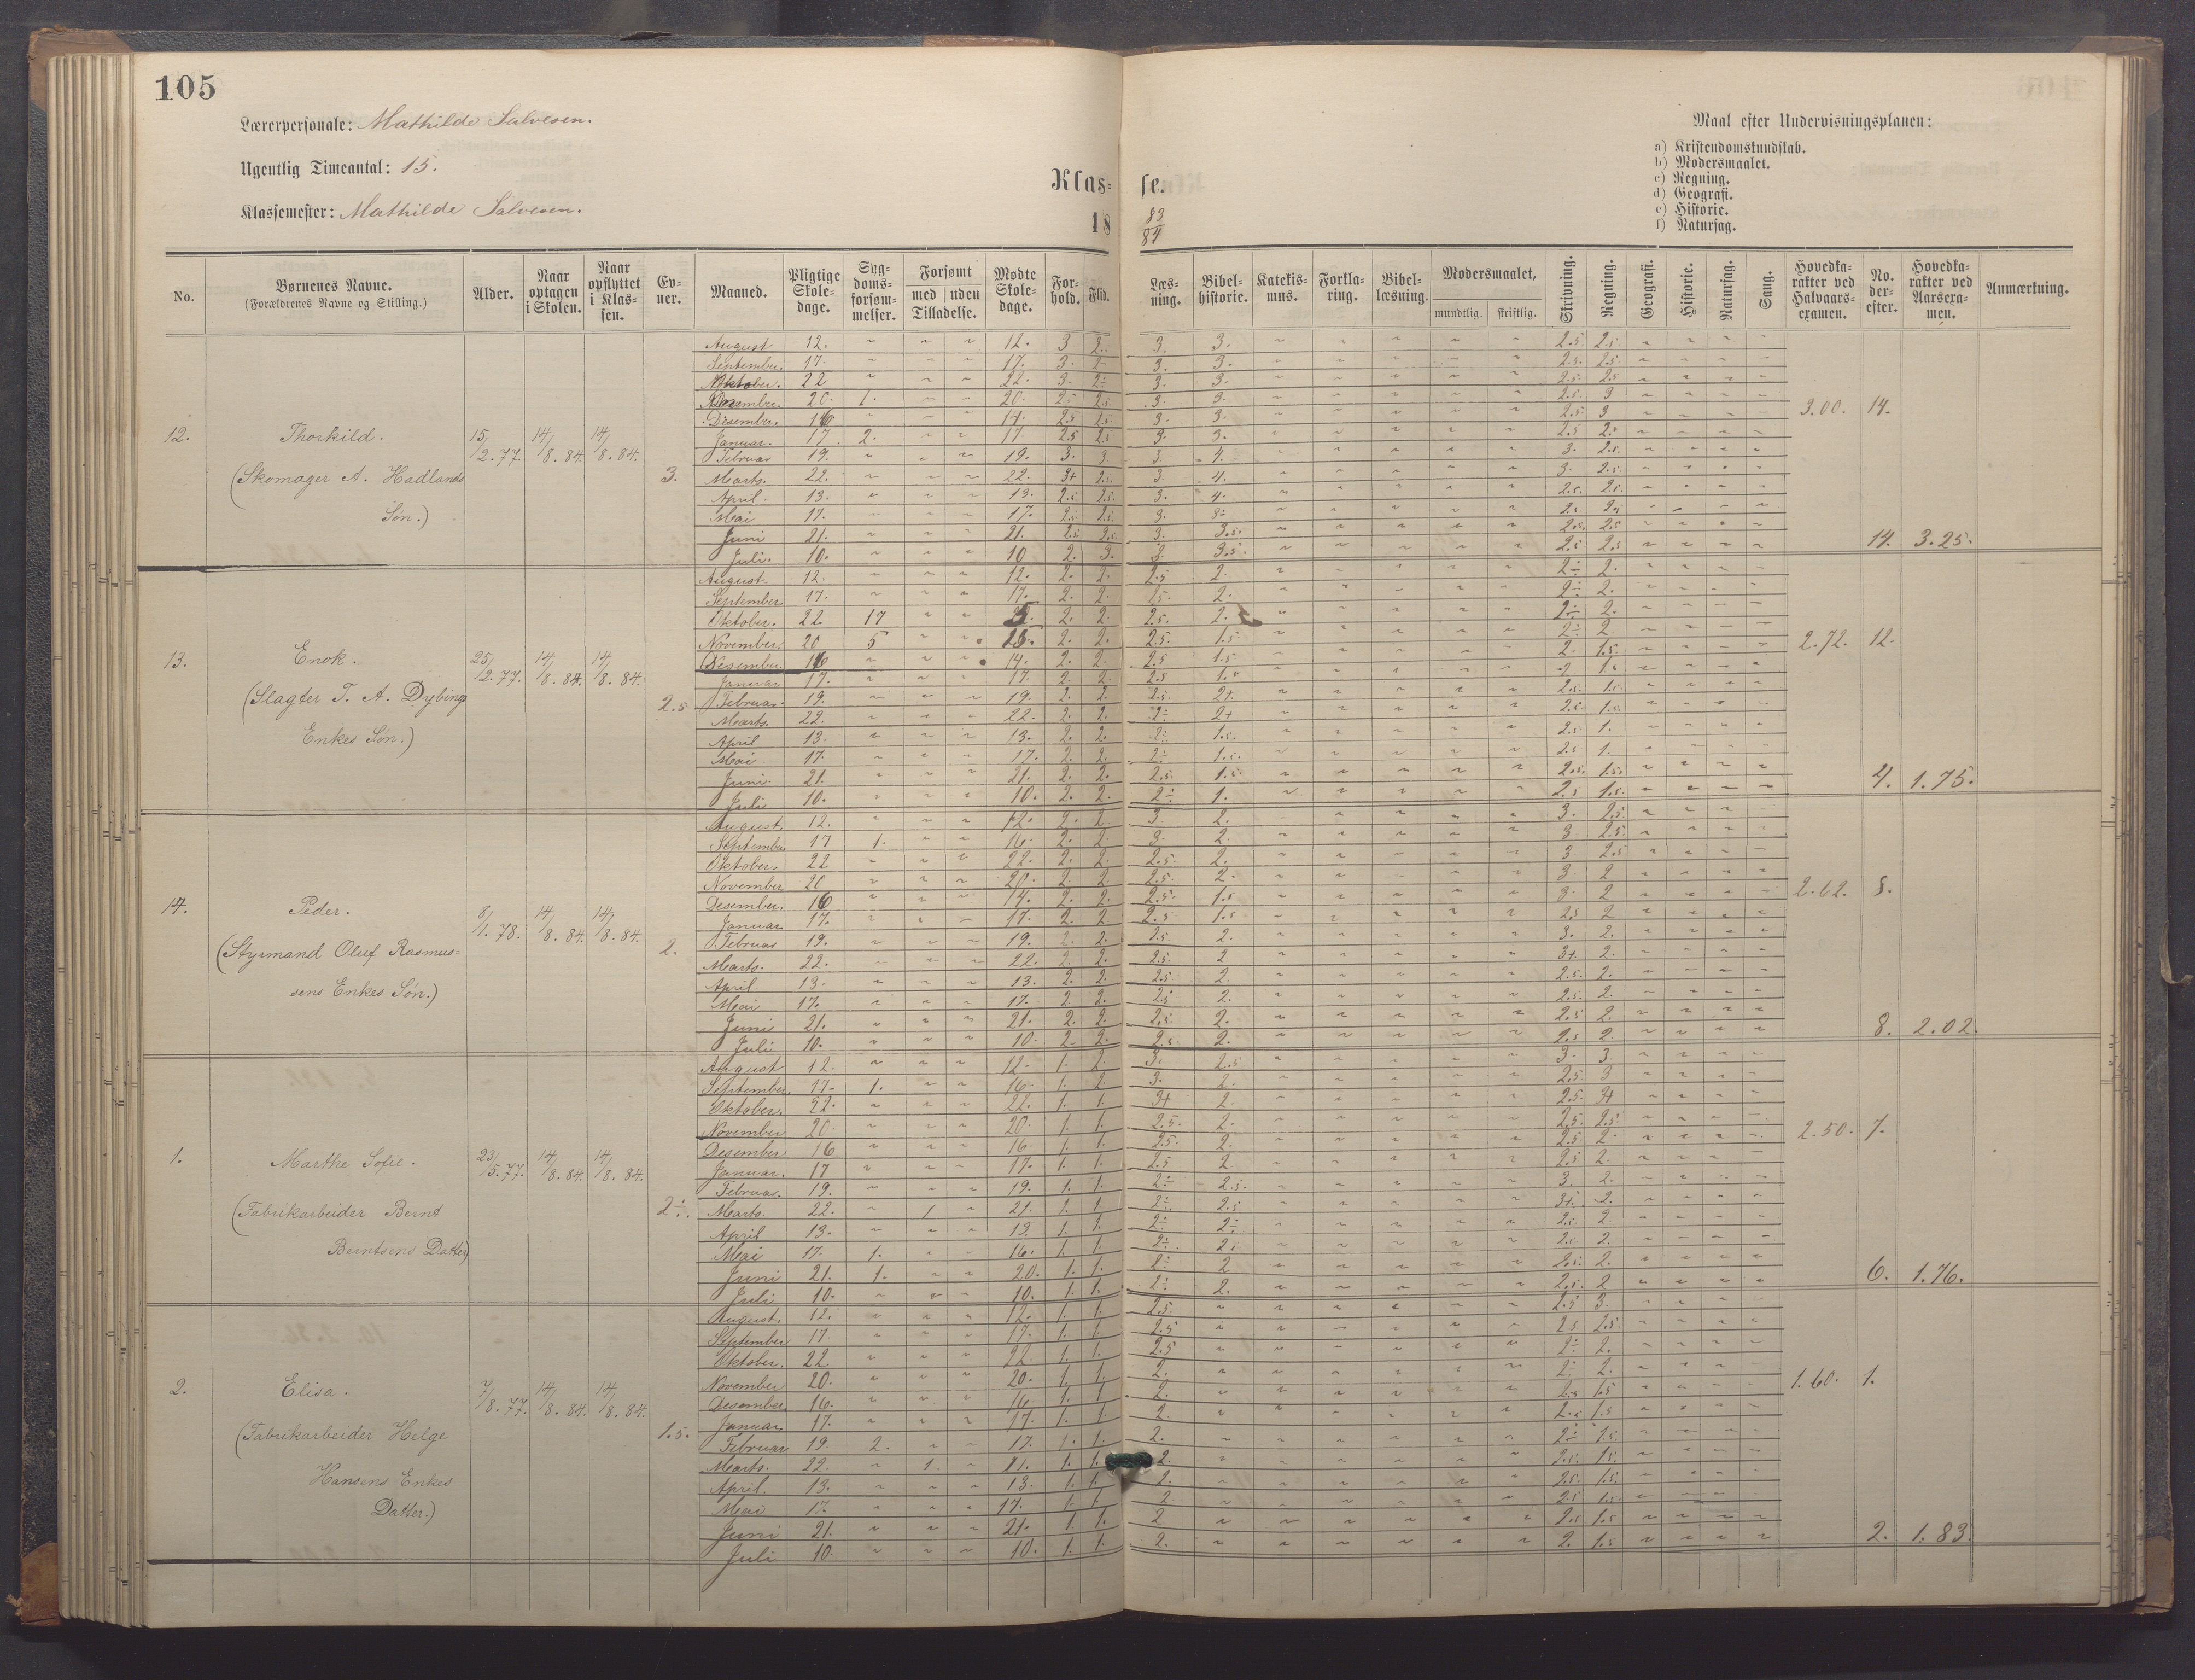 105
Lærerpersonale: Mathilde Salvesen.
Ugentlig Timeantal: 15.
Klassemester: Mathilde Salvesen.
Klasse.
18 83/84
Maal efter Undervisningsplanen:
a) Kristendomskundskab.
b) Modersmaalet.
c) Regning.
d) Geografi.
e) Historie.
f) Naturfag.
No. | Børnenes Navne. (Forældrenes Navne og Stilling.) | Alder. | Naar optagen i Skolen. | Naar opflyttet i Klassen. | Evner. | Maaned. | Pligtige Skoledage. | Sygdomsforsømmelser. | Forsømt med uden Tilladelse. | Mødte Skoledage. | Forhold. | Flid. | Læsning. | Bibelhistorie. | Katekismus. | Forklaring. | Bibellæsning. | Modersmaalet, mundtlig. skriftlig. | Skrivning. | Regning. | Geografi. | Historie. | Naturfag. | Sang. | Hovedkarakter ved Halvaarsexamen. | No. derefter. | Hovedkarakter ved Aarsexamen. | Anmærkning.
12. Thorkild. 15/2.77. 14/8.84. 14/8.84. 3. 3.00. 14.
(Skomager A. Hadlands
Søn.)
August 12. 12. 3 2. 3. 3. 2.5 2.5
September. 17. 17. 3. 2 3. 3. 2.5. 2.5.
Oktober. 22 22. 3. 2÷ 3. 3. 2.5. 2.5
November. 20. 1. 20. 2.5 2.5. 3. 3. 2.5. 3
Desember. 16 14. 2.5 2.5. 3. 3. 2.5 3
Januar. 17. 2. 17 2.5 2.5 3. 3. 2.5 2+
Februar 19. 19. 3. 3. 3. 4. 3. 2.5.
Marts. 22. 22. 3+ 2.5. 3. 4. 3. 2.5.
April. 13. 13. 2.5. 2.5. 3. 4. 2.5. 2.5.
Mai 17. 17. 2.5. 2.5. 3. 3÷ 2.5 2.5
Juni 21. 21. 2.5. 2.5. 3. 3.5. 2.5. 2.5
Juli. 10. 10 2. 3. 3 3.5. 2.5 2.5 14. 3.25.
13. Enok. 25/2.77. 14/8.84. 14/8.84. 2.5 2.72. 12.
(Slagter T. A. Dybing
Enkes Søn.)
August. 12. 12. 2. 2. 2.5 2. 2÷ 2.
September. 17. 17. 2. 2. 1.5. 2. 2÷ 2.
Oktober. 22. 17 5. 2. 2. 2.5. 2. 2÷ 2.
November. 20 5 15. 2. 2. 2.5. 1.5. 2÷ 2
Desember. 16 14. 2. 2. 2.5 1.5 2. 1.5.
Januar 17. 17. 2. 2. 2.5 1.5
Februar. 19. 19. 2. 2. 2.5. 2+ 2.5. 1.5.
Marts. 22. 22. 2. 2. 2÷ 2+ 2.5 1.5.
April 13. 13. 2. 2. 2÷ 1.5. 2.5 1.
Mai 17. 17. 2. 2. 2÷ 1.5. 2.5 1.
Juni. 21. 21. 2. 2. 2.5. 1.5. 2.5. 1.5.
Juli 10. 10. 2. 2. 2÷ 1. 2.5 1.5. 4. 1.75.
14. Peder. 8/1.78. 14/8.84. 14/8.84. 2. 2.62. 8.
(Styrmand Oluf Rasmus=
sens Enkes Søn.)
August. 12. 12. 2. 2. 3. 2. 3. 2.5.
September 17 1. 16. 2. 2. 3. 2. 3 2.5.
Oktober. 22 22. 2. 2. 2.5. 2. 3. 2.5
November 20 20. 2. 2. 2.5. 2. 3. 2
Desember. 16 14. 2. 2. 2.5. 1.5 3. 2
Januar. 17. 17. 2. 2. 2.5 1.5 2.5 2
Februar 19. 19. 2. 2. 2.5. 2. 3. 2.
Marts. 22. 22. 2. 2. 2.5. 2 3+ 2.
April 13. 13. 2. 2. 2.5 2. 2.5. 2.
Mai 17. 17. 2. 2. 2.5 2. 2.5. 2.
Juni 21. 21. 2. 2. 2.5. 2. 2.5 2.
Juli 10. 10. 2. 2. 2.5 2. 2.5 2. 8. 2.02.
1. Marthe Sofie. 23/5.77. 14/8.84. 14/8.84. 2÷. 2.50. 7.
(Fabrikarbeider Bernt
Berntsens Datter)
August 12. 12. 1. 2. 3. 2.5 3. 3.
September. 17. 1. 16. 1. 2. 3. 2. 2.5 3
Oktober. 22. 22. 1. 1. 3+ 2. 2.5.
November 20. 20. 1. 1. 2.5. 2. 2.5. 2.5.
Desember 16 16 1. 1. 2.5. 2. 2.5 2.
Januar. 17 17. 1. 1. 2.5 2. 2.5 2.
Februar. 19. 19. 1. 1. 2÷ 2.5. 3. 2.
Marts. 22. 1 21. 1. 1. 2÷ 2.5 3+. 2.
April 13. 13. 1. 1. 2÷ 2÷ 2.5 2.
Mai 17. 1. 16. 1. 1. 2÷ 2. 2.5. 2.
Juni 21. 1. 20. 1. 1. 2÷ 2 2.5. 2.
Juli 10. 10. 1. 1. 2÷ 2. 2.5. 2 6. 1.76.
2. Elisa. 7/8.77. 14/8.84. 14/8.84. 1.5. 1.60. 1.
(Fabrikarbeider Helge
Hansens Enkes
Datter.)
August. 12. 12. 1. 1. 2.5. 2.5 3.
September 17. 17. 1. 1. 2.5 2.5 2.5.
Oktober. 22 22 1. 1. 2.5 2÷ 2.
November 20. 20. 1. 1. 2. 2÷ 2.
Desember. 16. 16 1. 1. 2. 2.5 1.5
Januar. 17. 17. 1. 1. 2. 2.5 1.5
Februar 19. 2. 17. 1. 1. 2. 2÷ 1.5.
Marts. 22. 1. 21. 1. 1. 2. 2.5. 1.5.
April. 13. 13. 1. 1. 2. 2.5. 1.5.
Mai 17. 17. 1. 1. 2. 2.5 1.5.
Juni 21. 21. 1. 1. 2 2.5 1.5
Juli 10. 10. 1. 1. 2. 2. 1.5 2. 1.83.